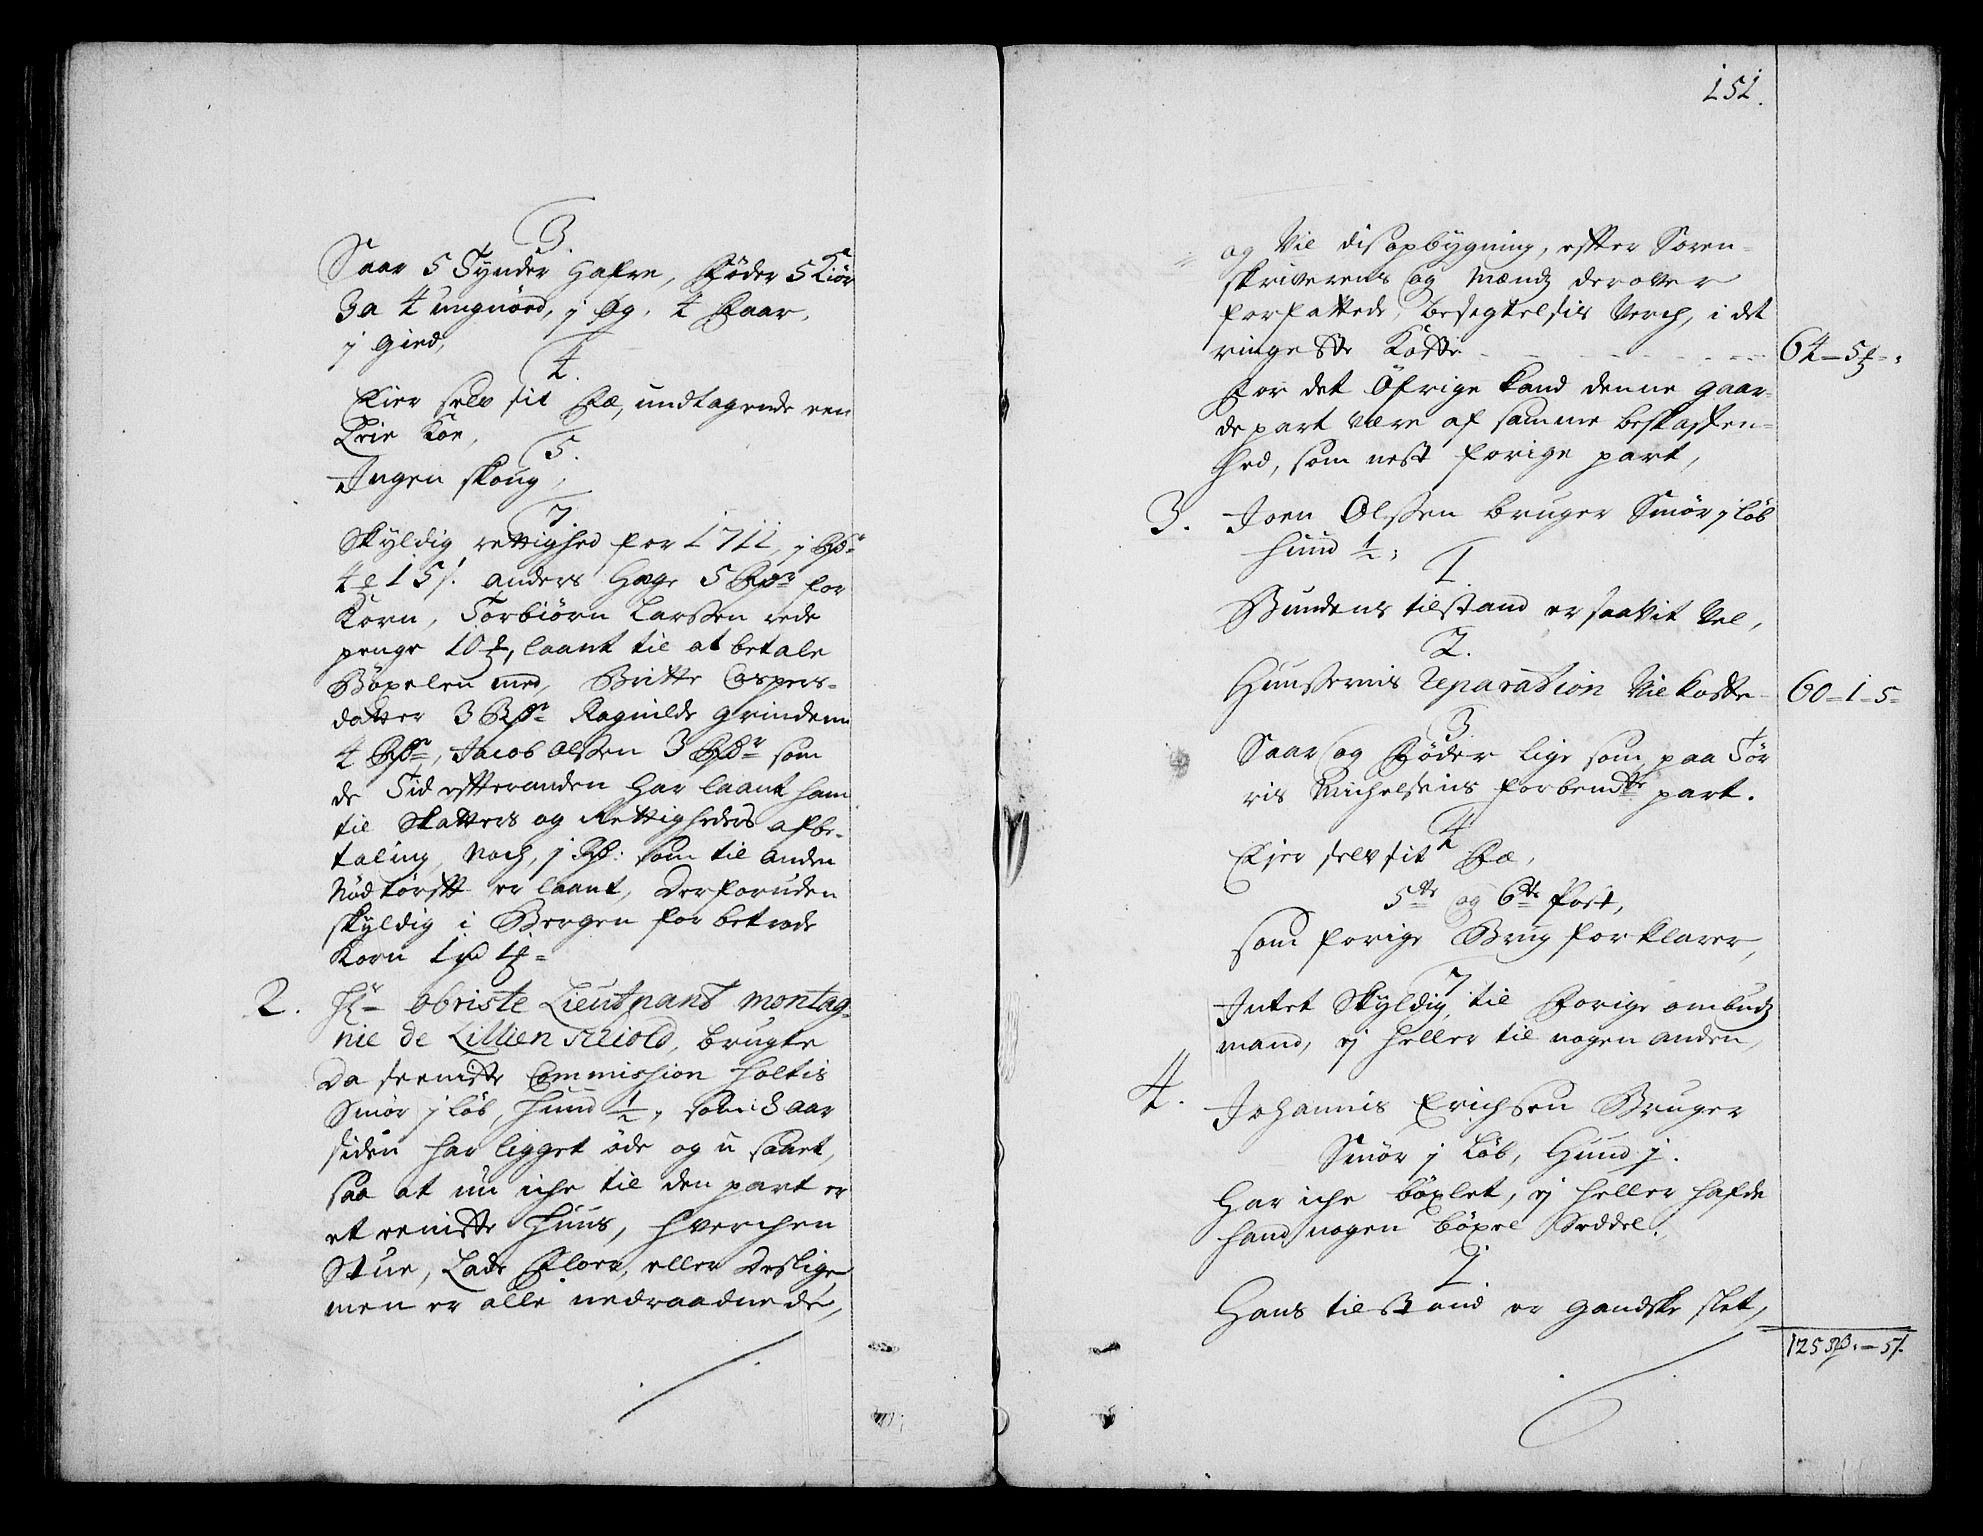 3.
Saar 5 Tynder Hafre, Føder 5 Kiør
3 a 4 ungnød, j Øg, 4 Faar,
j Gied,
4.
Eier selv sit Fæ, undtagende een
Leie Koe,
5.
Ingen skoug,
7.
Skyldig rettighed for 1711, j Rdr
4 15 s. anders Hage 5 Rdr for
Korn, Torbiørn Larssen rede
penge 10, laant til at betale
Böxelen med, Britte Caspers-
datter 3 Rdr Ragnilde Grindenn
4 Rdr, Jacob Olssen 3 Rdr som
de Tid effter anden har laant ham
til Skatters og Rettigheders afbe-
taling, Noch, j Rd: som til anden
Nødtörfft er laant, Desforuden
skyldig i Bergen for betrode
Korn
2. Hr obriste Lieutnant montag-
nie de Lillien Skiold, brugte
da seeniste Commission holtis
Smör j löb, Huud ½, som 3 aar
siden har ligget øde og u saaet,
saa at nu iche til den part er
et eeniste Huus, hverchen
Stue, Lade Floer, eller Deslige,
men er alle nedraadnede,
151.
og Vil dis opbygning, efter Soren-
skriverens og Mændz derover
forfattede besegtelsis Verch, i det
ringeste Koste 64 - 5
for det Öfrige kand denne gaar-
de part være af samme beskaffen-
hed, som nest forige part,
3. Joen Olssen bruger Smör j löb
huud ½,
1.
Bundens tilstand er saavit Vel,
2.
Huussernis reparation Vil koste 60 - 1 - 5
3
Saar og Føder lige som paa Tör
ris Michelsens forbendte part.
4
Ejer selv sit Fæ,
5te og 6te Post,
som forige Brug forklarer,
7
Intet Skyldig til Forige ombudz
mand, ej heller til nogen anden,
4. Johannis Erichsen Bruger
Smör j Löb, Huud j.
Har iche böxlet, ej heller hafde
hand nogen böxel Seddel.
1.
Hans tilstand er gandske slet,
125 Rd. - 5 s.